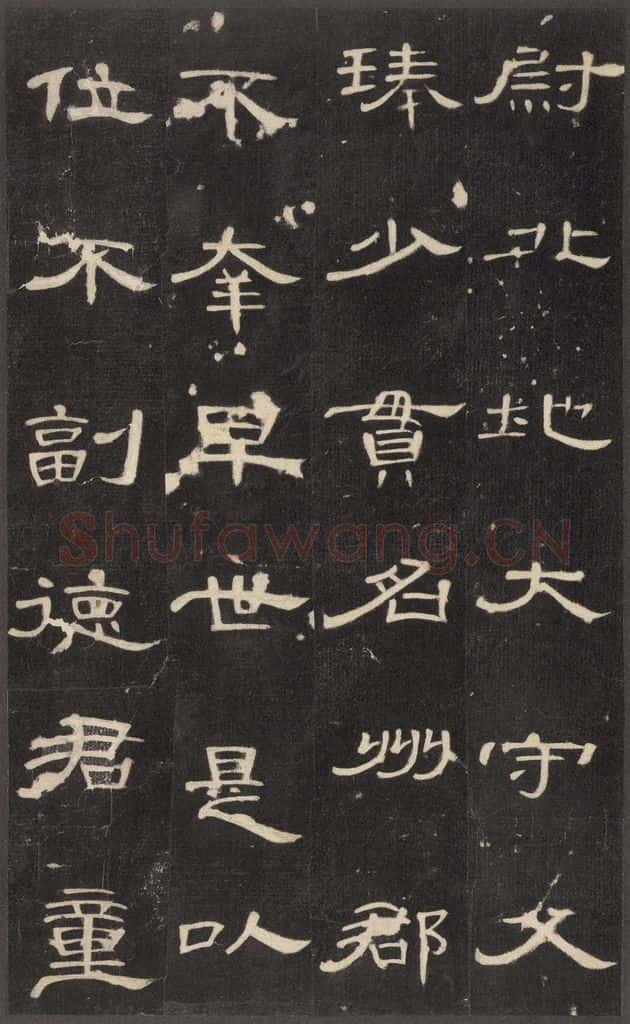 尉北地大守父
琫少貫名州郡
不幸早世是以
位不副德君童
Shufawang.CN